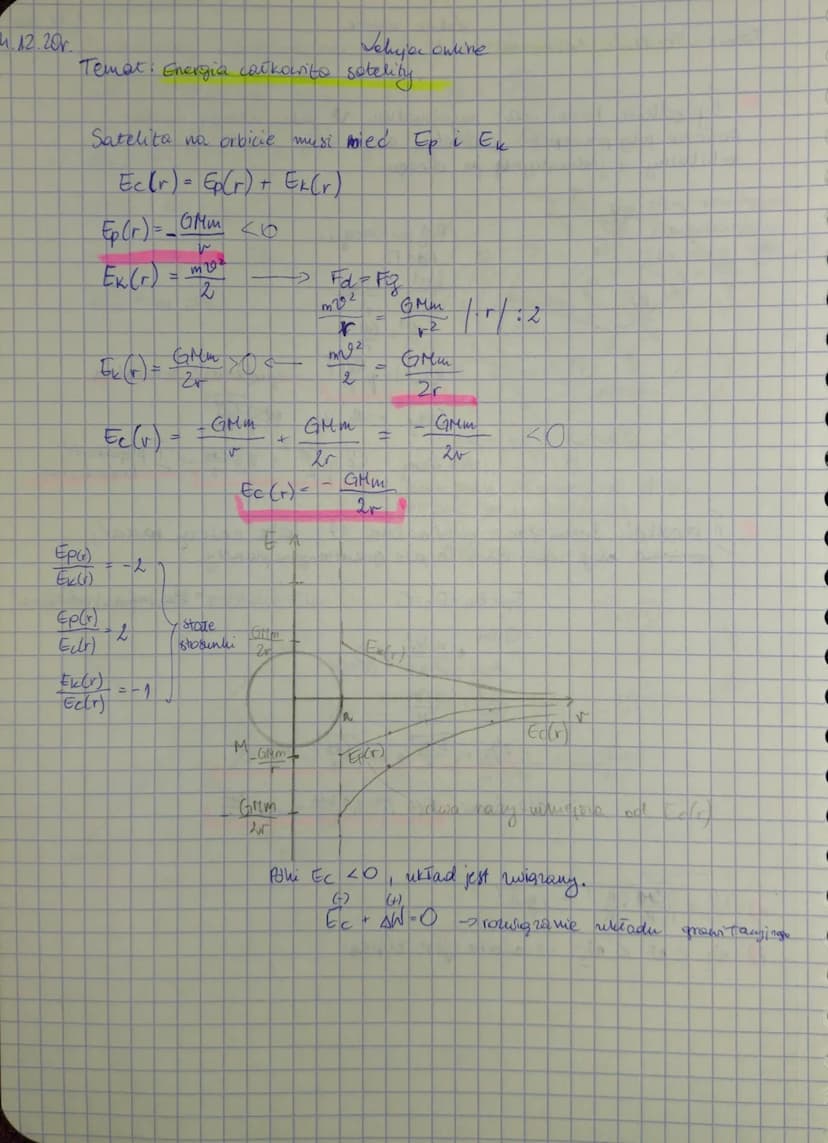 4.12.20r. Lekcja online
Temat: Energia całkowita satelity
Satelita na orbicie musi mieć Ep i Ek
Ec(r) = Ep(r) + Ek(r)
Ep(r) = -GMm/r <0
Ek(r) = mv²/2 → Fd = Fg
mv²/r = GMm/r² /·r/ :2
Ek(r) = GMm/2r >0 ← mv²/2 = GMm/2r
Ec(r) = -GMm/r + GMm/2r = -GMm/2r <0
Ec(r) = -GMm/2r
E
Ep(r)/Ek(r) = -2
Ep(r)/Ec(r) = 2
stałe
stosunki
Ek(r)/Ec(r) = -1
GMm/2r
Ek(r)
R
r
M
-GMm/r
Ep(r)
Ec(r)
-GMm/2r
dwa razy większa od Ec(r)
Póki Ec <0, układ jest związany.
(-) (+)
Ec + ΔW = 0 → rozwiązanie układu grawitacyjnego